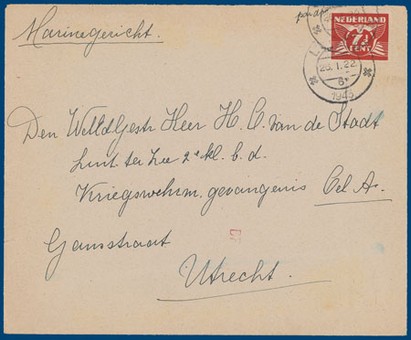 Marinegericht.
NEDERLAND
7½
CENT
1.22
1943
Den WelEdGestr Heer H. C. van de Stadt
Luit. ter Zee 2e kl. b.d.
Kriegswehrm. gevangenis Cel A.
Gansstraat
Utrecht.